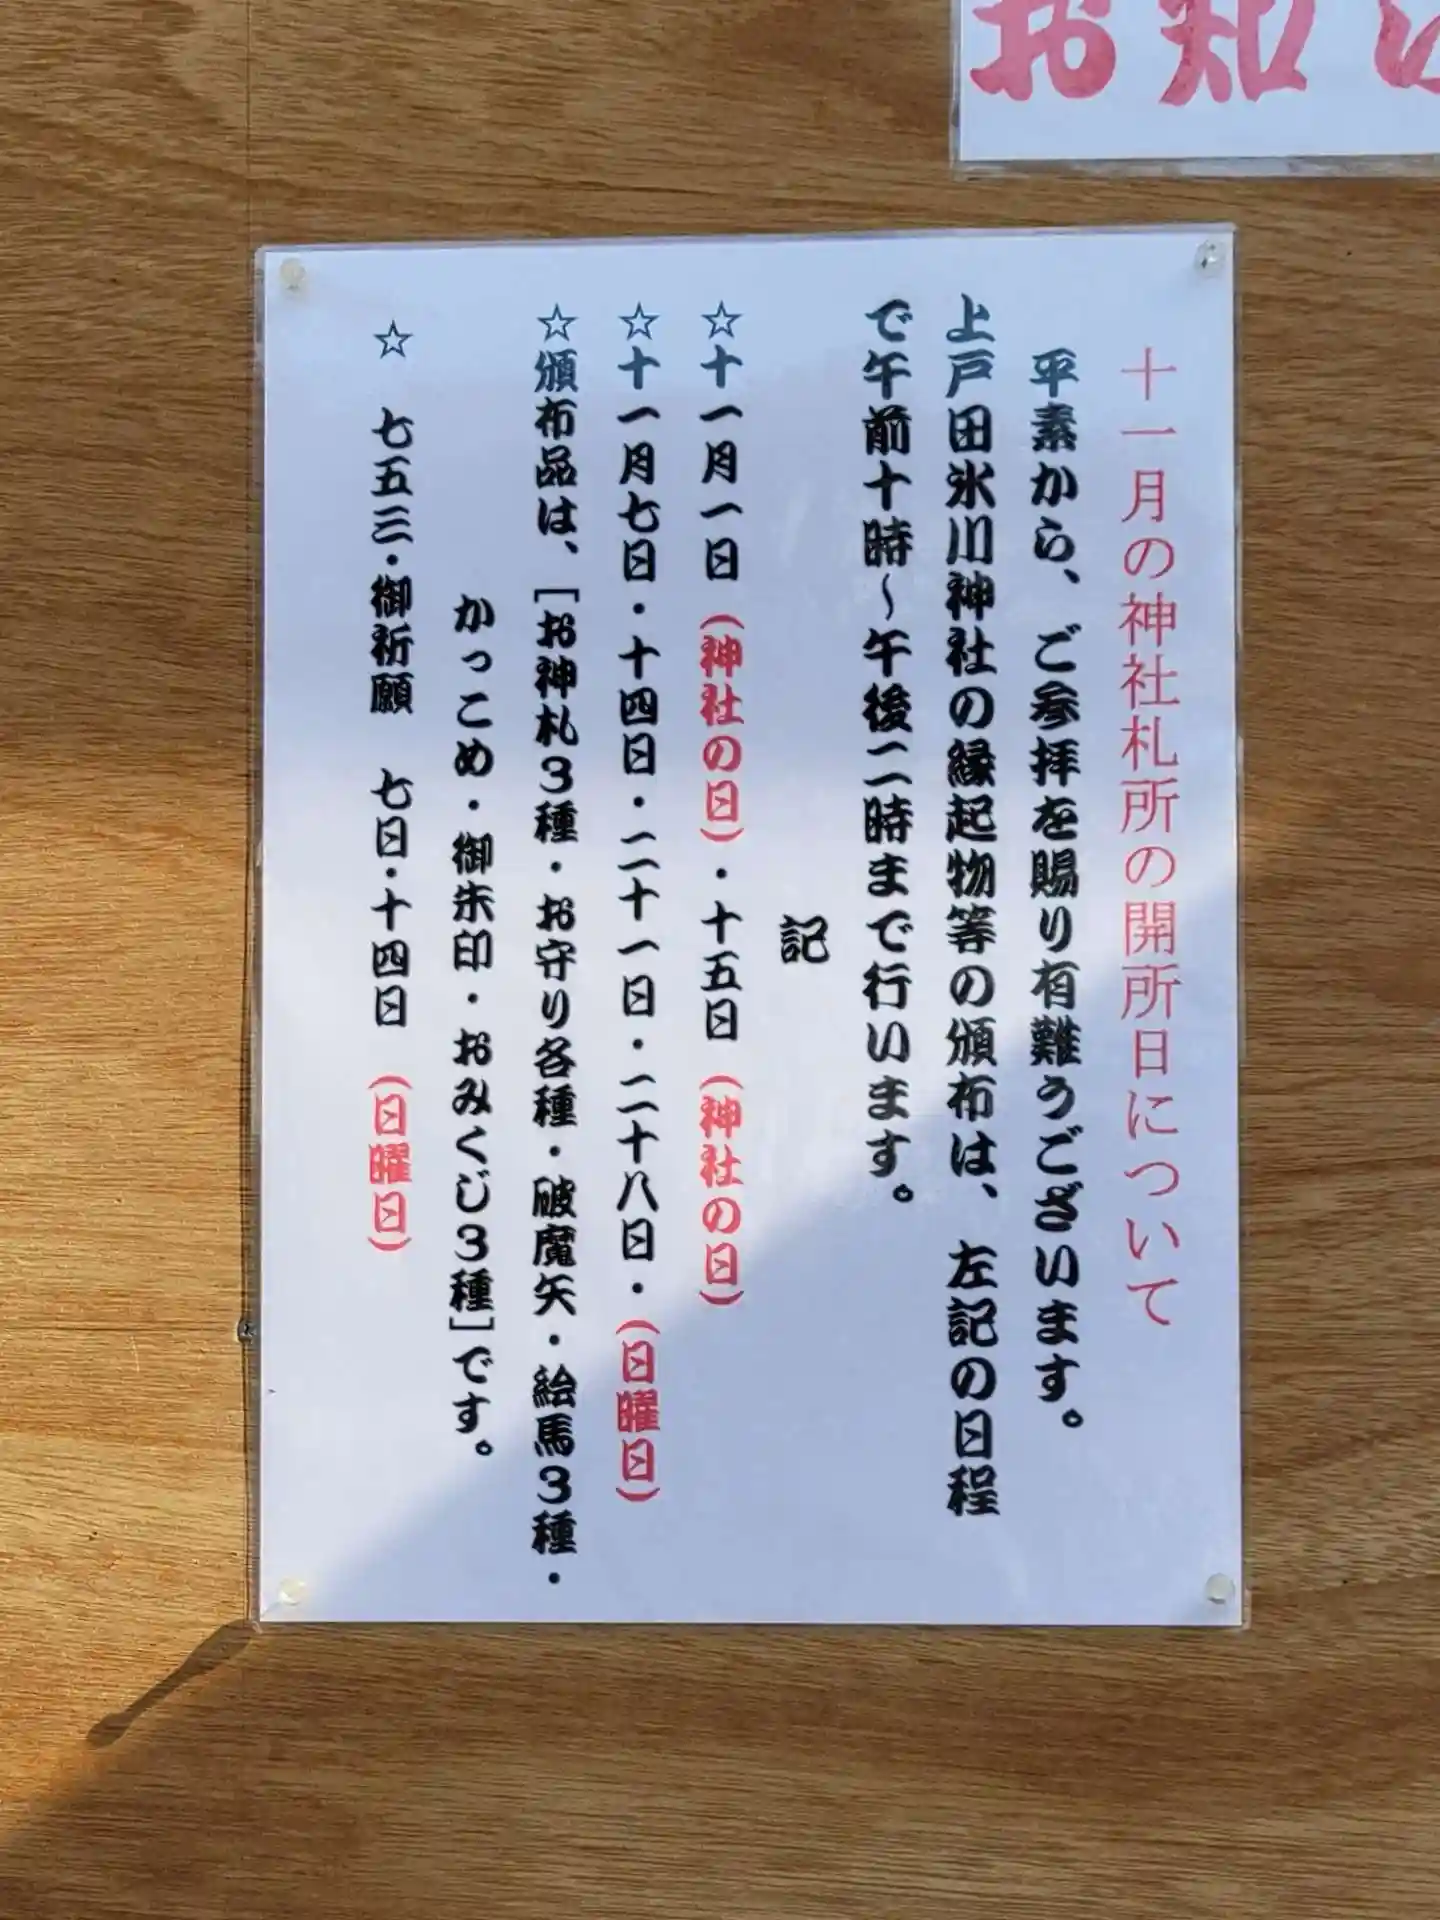 お知
十一月の神社札所の開所日について
平素から、ご参拝を賜り有難うございます。
上戸田氷川神社の縁起物等の頒布は、左記の日程
で午前十時〜午後二時まで行います。
記
☆十一月一日（神社の日）・十五日（神社の日）
☆十一月七日・十四日・二十一日・二十八日・（日曜日）
☆頒布品は、［お神札３種・お守り各種・破魔矢・絵馬３種・
かっこめ・御朱印・おみくじ３種］です。
☆　七五三・御祈願　七日・十四日（日曜日）